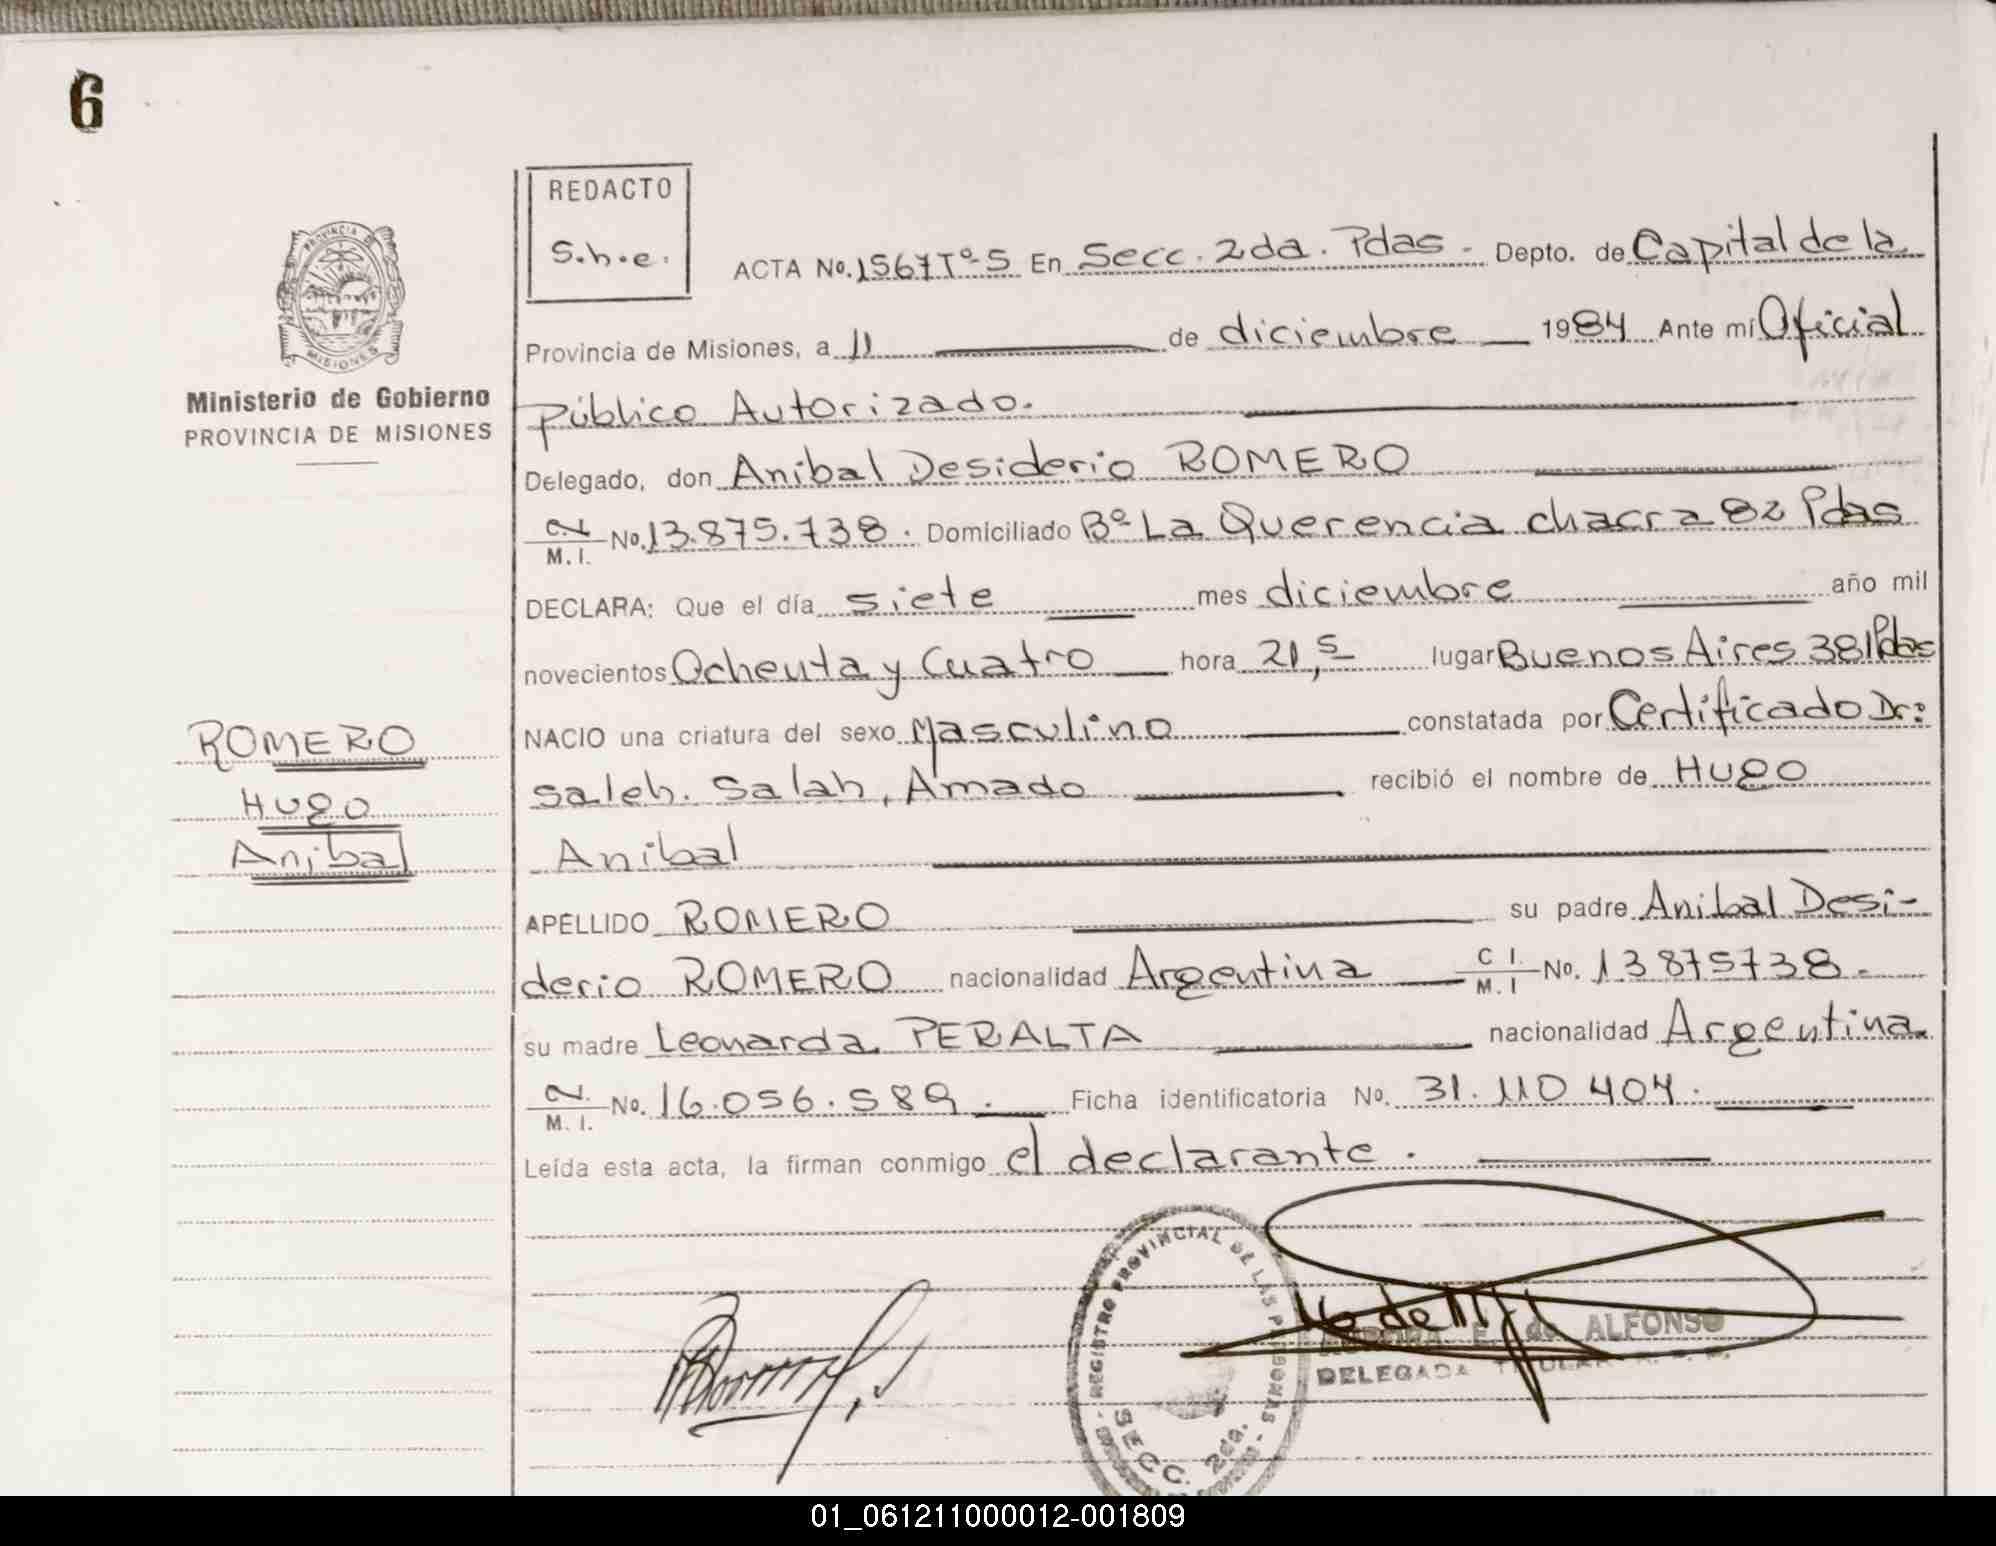 6
REDACTO
S.h.e.
PROVINCIA DE
MISIONES
Ministerio de Gobierno
PROVINCIA DE MISIONES
ACTA No. 1567 Tº-5 En Secc. 2da. Pdas - Depto. de Capital de la
Provincia de Misiones, a 11 de diciembre 1984 Ante mí Oficial
Público Autorizado.
Delegado, don Anibal Desiderio ROMERO
M. I. No. 13.875.738. Domiciliado Bº La Querencia chacra 82 Pdas
DECLARA: Que el día siete mes diciembre año mil
novecientos Ochenta y Cuatro hora 21,5 lugar Buenos Aires 381 Pdas
NACIO una criatura del sexo Masculino constatada por Certificado Dr:
Saleh. Salah, Amado recibió el nombre de Hugo
Anibal
ROMERO
Hugo
Anibal
APELLIDO ROMERO su padre Anibal Desi-
derio ROMERO nacionalidad Argentina C I. M. I No. 13875738.
su madre Leonarda PERALTA nacionalidad Argentina
M. I. No. 16.056.589. Ficha identificatoria No. 31.110 404.
Leída esta acta, la firman conmigo el declarante.
REGISTRO PROVINCIAL DE LAS PERSONAS
SECC. 2da.
E. de ALFONSO
DELEGADA TITULAR
01_061211000012-001809